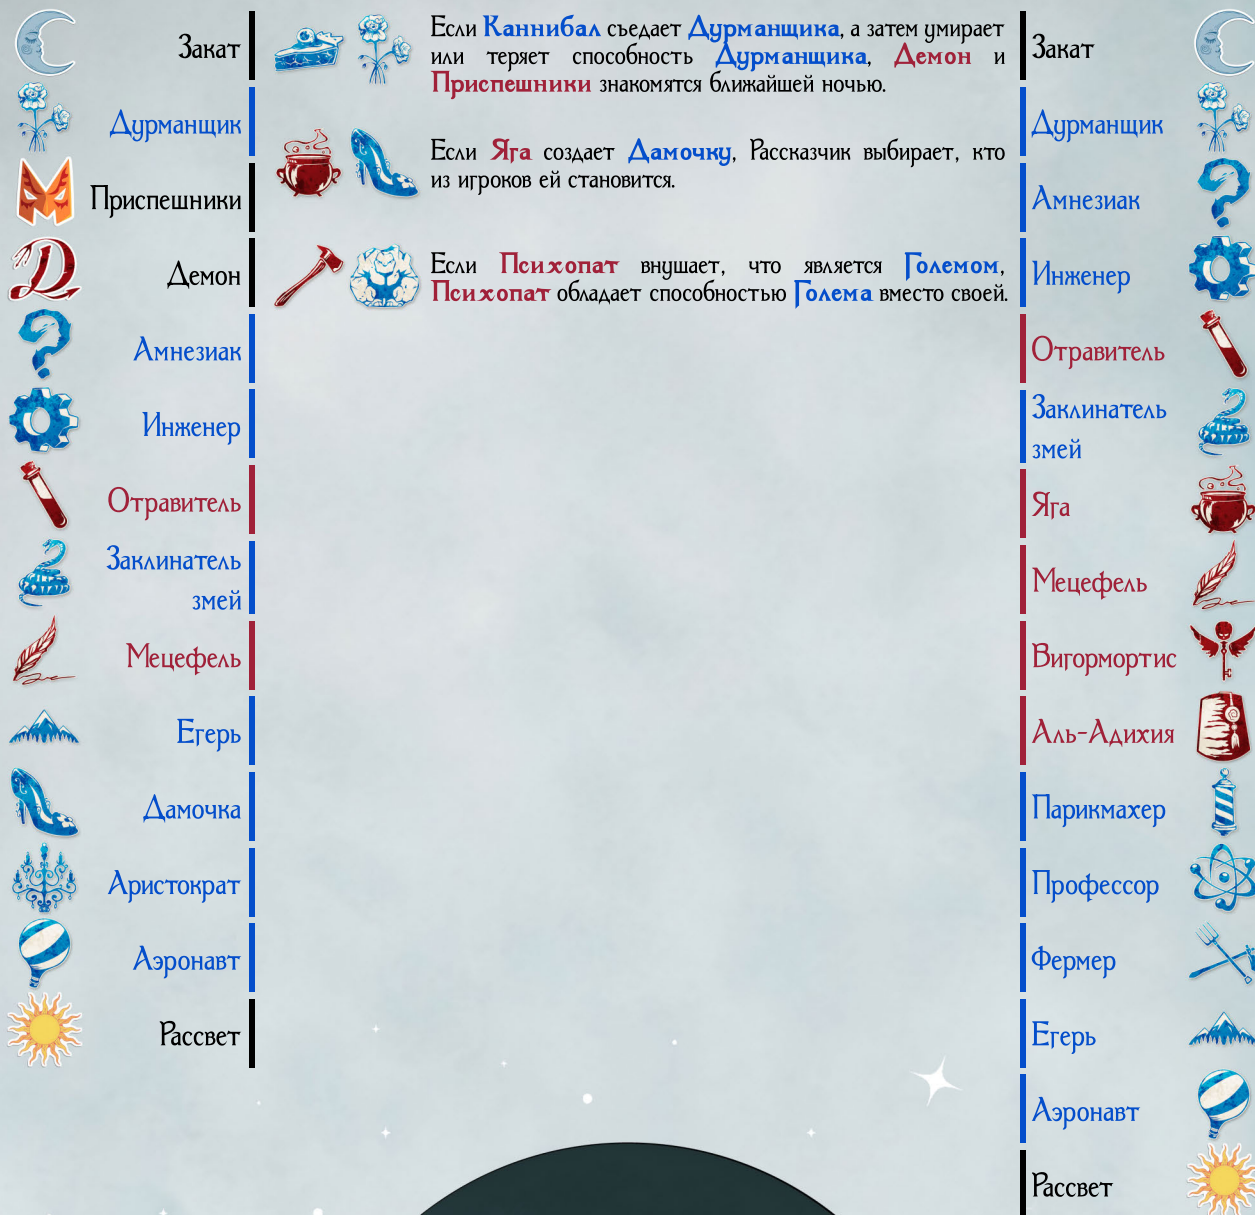 Закат
Дурманщик
Приспешники
Демон
Амнезиак
Инженер
Отравитель
Заклинатель
змей
Мецефель
Егерь
Дамочка
Аристократ
Аэронавт
Рассвет
Если Каннибал съедает Дурманщика, а затем умирает
или теряет способность Дурманщика, Демон и
Приспешники знакомятся ближайшей ночью.
Если Яга создает Дамочку, Рассказчик выбирает, кто
из игроков ей становится.
Если Психопат внушает, что является Големом,
Психопат обладает способностью Голема вместо своей.
Закат
Дурманщик
Амнезиак
Инженер
Отравитель
Заклинатель
змей
Яга
Мецефель
Вигормортис
Аль-Адихия
Парикмахер
Профессор
Фермер
Егерь
Аэронавт
Рассвет